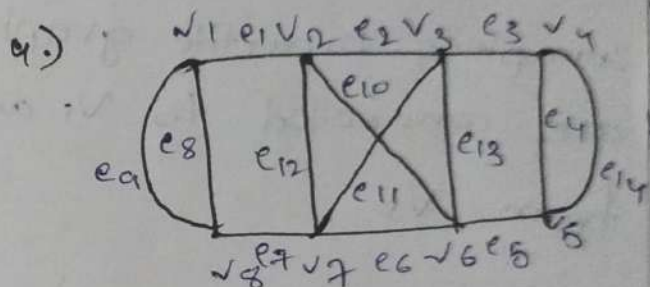 9.)
v1 e1 v2 e2 v3 e3 v4
e10
e9 e8 e12 e11 e13 e4 e14
v8 e7 v7 e6 v6 e5 v5